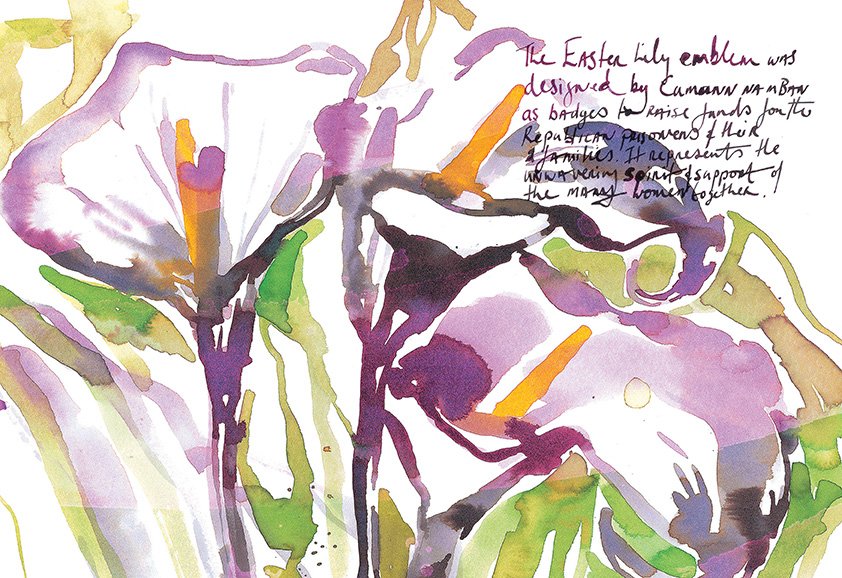 The Easter Lily emblem was
designed by Cumann na mBan
as badges to raise funds for the
Republican prisoners & their
& families. It represents the
unwavering spirit & support of
the many women together.